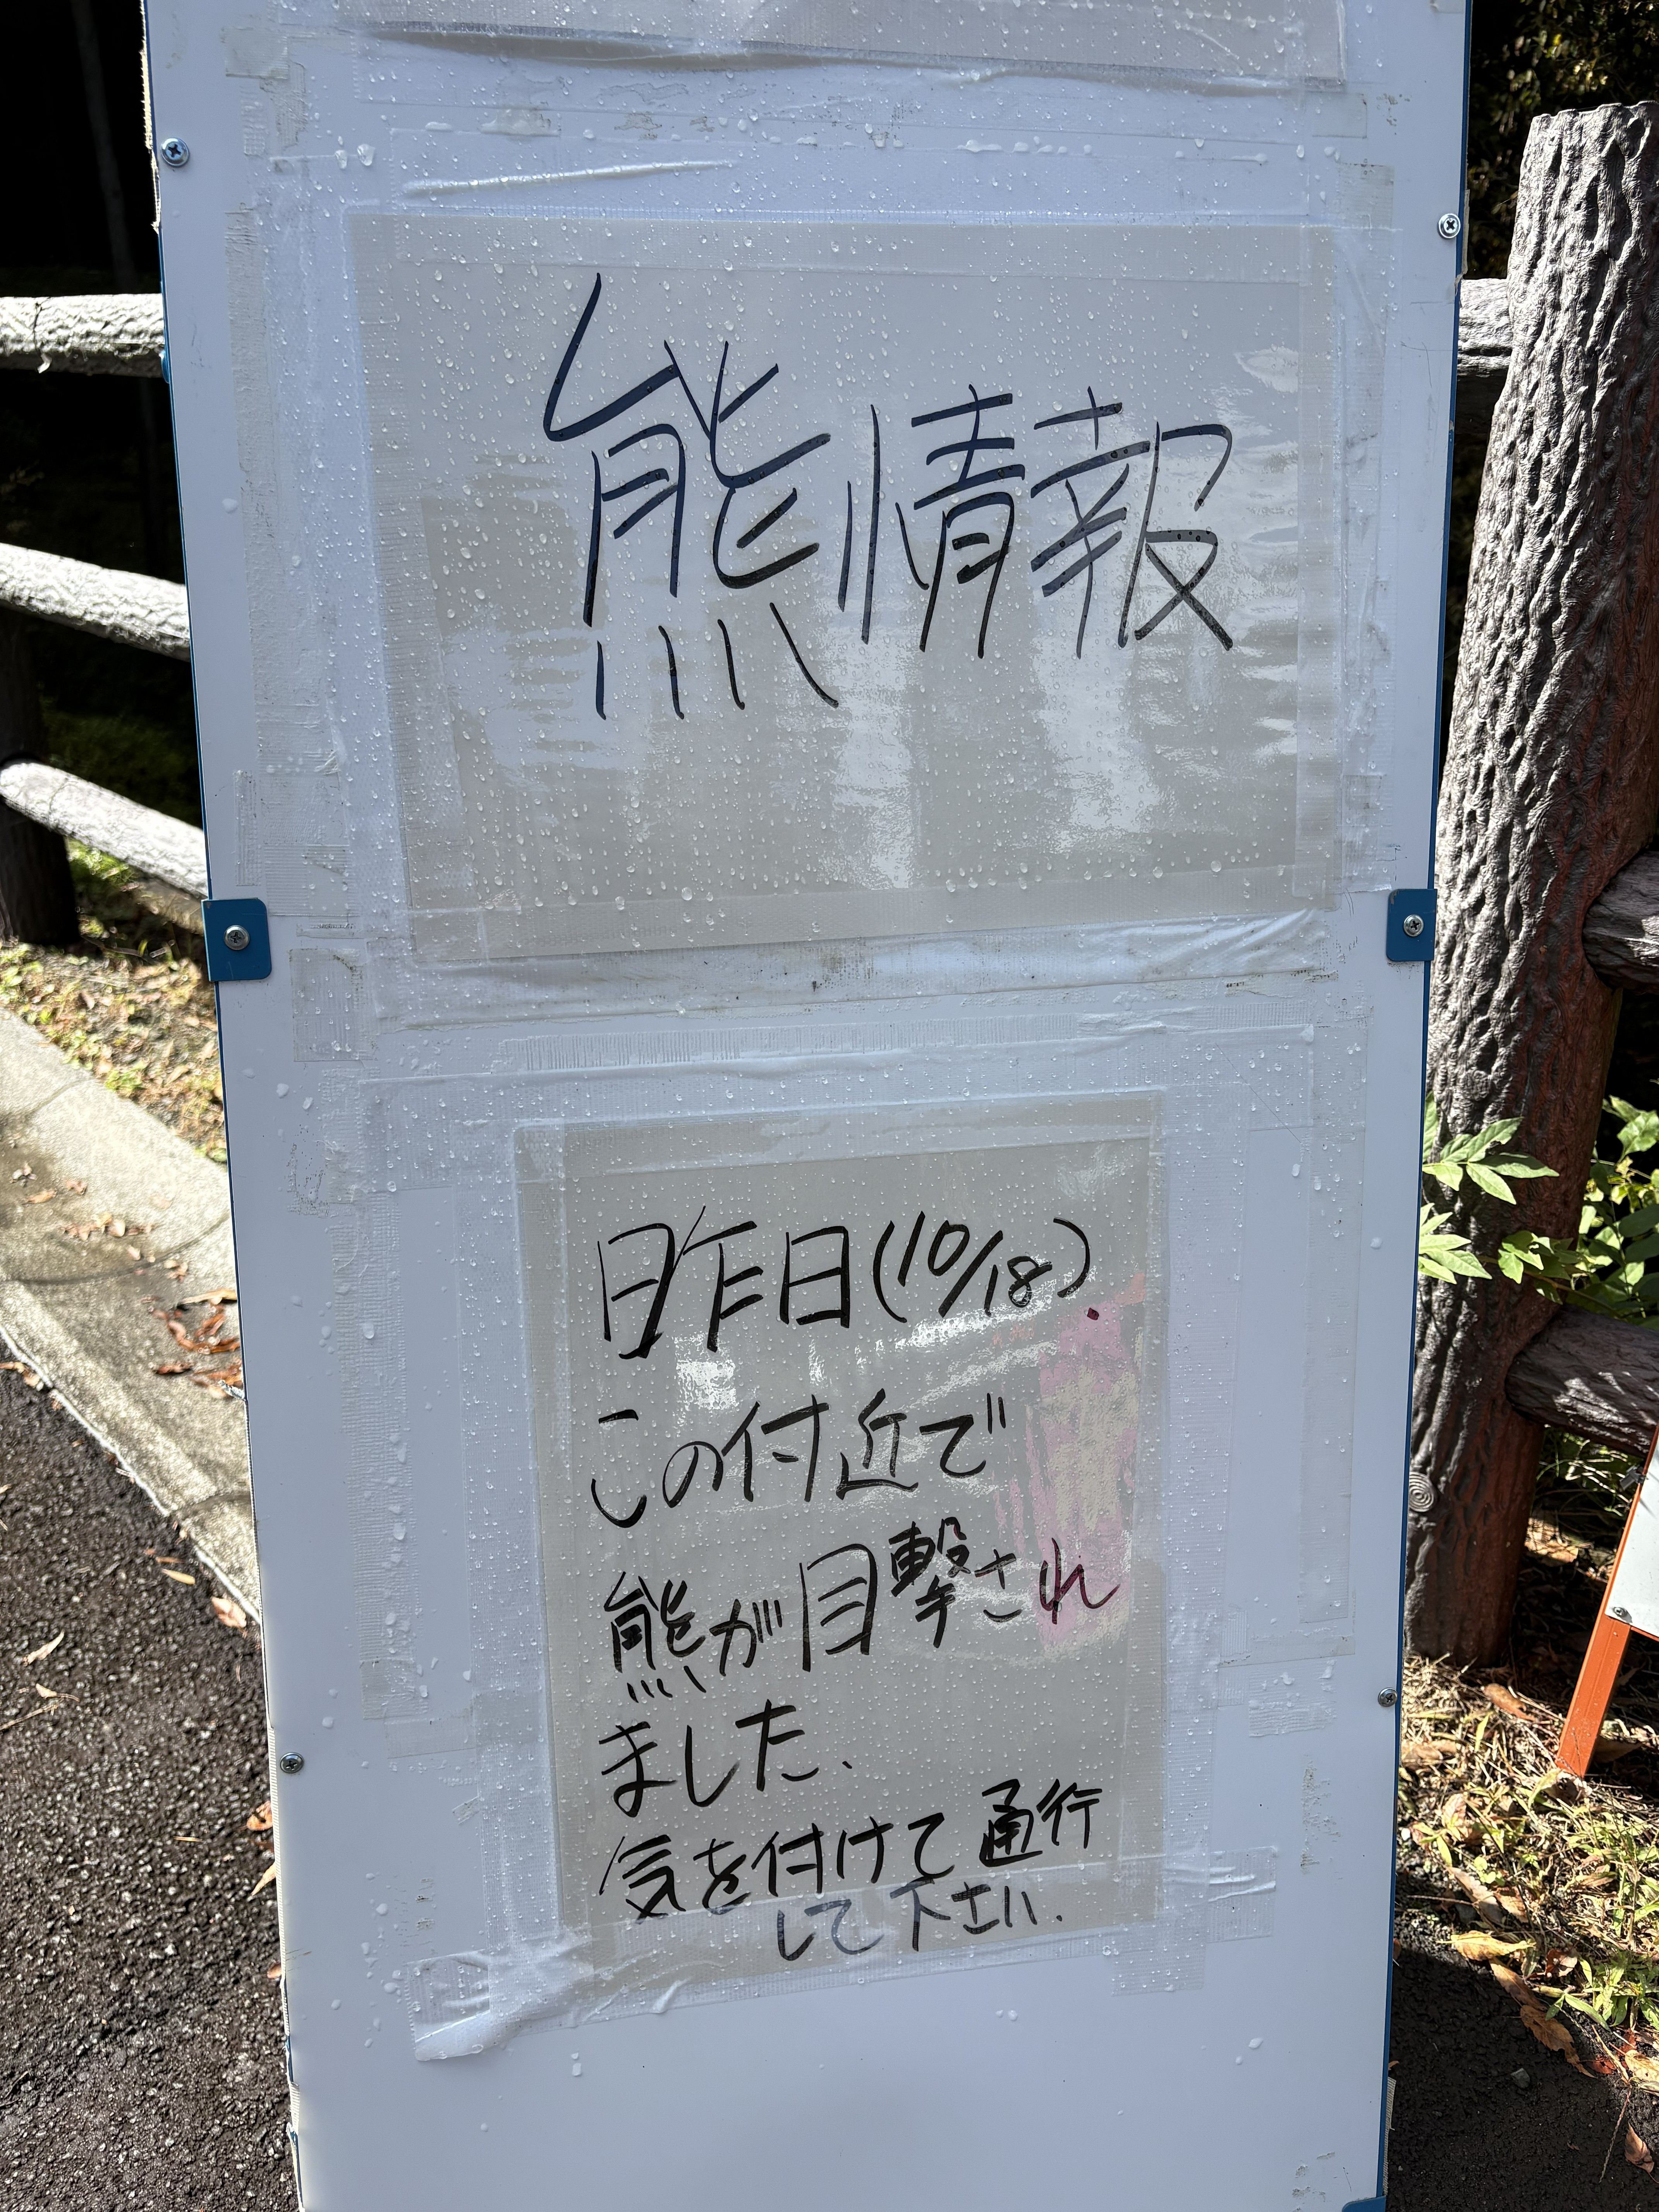 熊情報
昨日(10/18).
この付近で
熊が目撃され
ました、
気を付けて通行
して下さい.